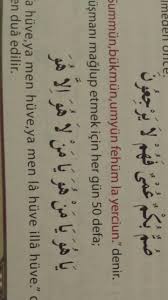 imden önce:
صُمٌّ بُكْمٌ عُمْيٌ فَهُمْ لَا يَرْجِعُونَ
Summün, bükmün, umyün fehüm la yerciun." denir.
üşmanı mağlup etmek için her gün 50 defa;
يَا هُوَ يَا مَنْ هُوَ يَا مَنْ لَا هُوَ اِلَّا هُوَ
â hüve, ya men hüve, ya men lâ hüve illâ hüve."
en duâ edilir.